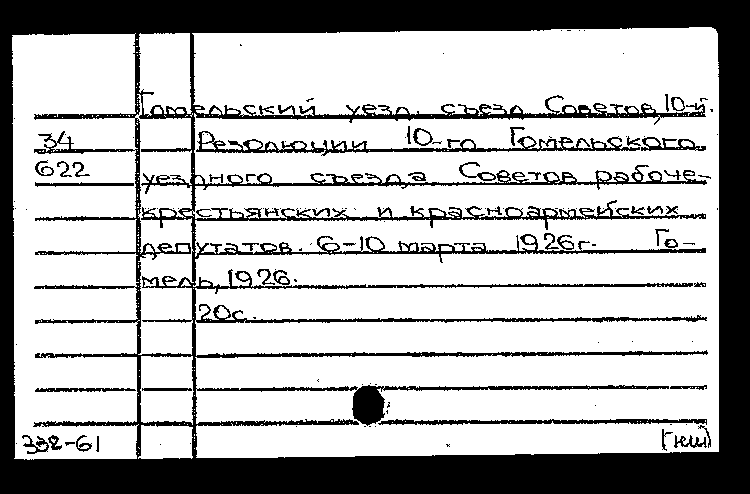 Гомельский уезд. съезд Советов, 10-й.
34 Резолюции 10-го Гомельского
622 уездного съезда Советов рабоче-
крестьянских и красноармейских
депутатов. 6-10 марта 1926г. Го-
мель, 1926.
20с.
332-61